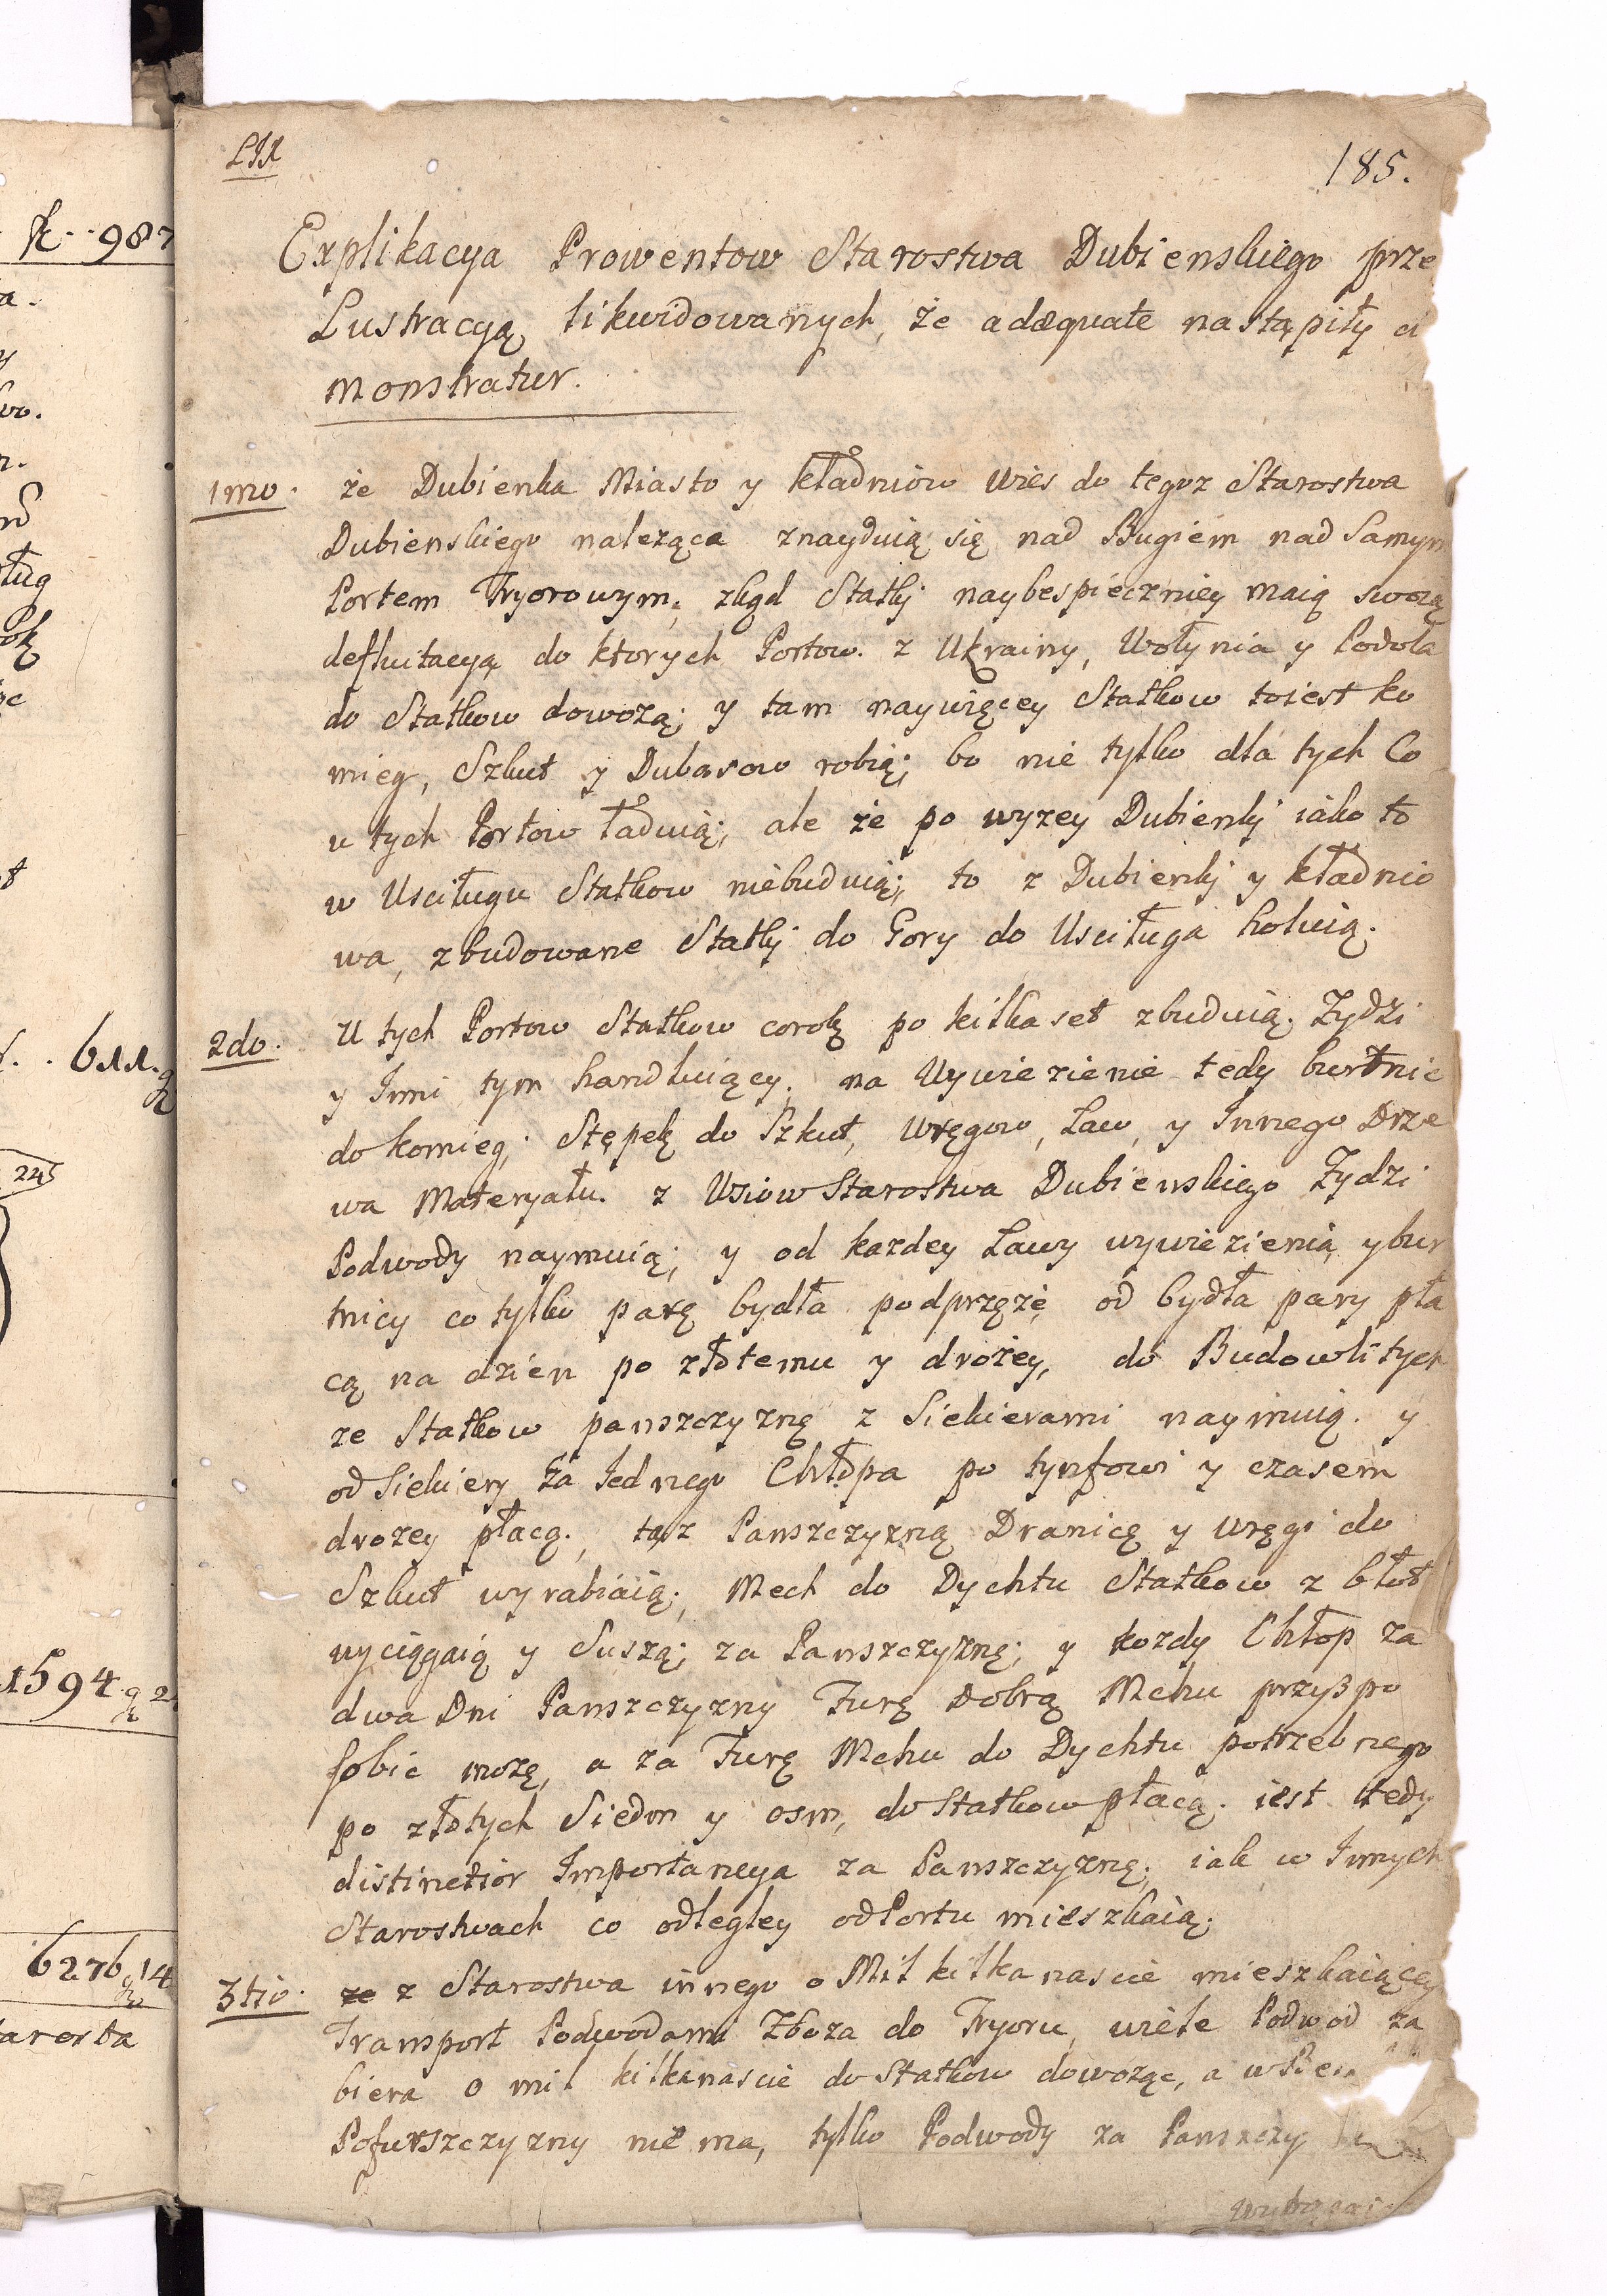 185.
Explikacya Prowentow Starostwa Dubienskiego prze
Lustracyą likwidowanych, że adæquate nastąpiły
monstratur.
1mo. że Dubienka Miasto y kładniów wies do tegoz Starostwa
Dubienskiego nalezącą znayduią się nad Bugiem nad Samym
Portem Fryorowym, zkąd Statkj naybespieczniey maią swoią
defluitacyą do ktorych Portow. z Ukrainy, Wołynia y Podola
do Statkow dowozą; y tam naywięcey Statkow toiest ko
mieg, Szkut y Dubasow robią; bo nie tylko dla tych Co
u tych Portow ładuią; ale że po wyzey Dubienkj iako to
w Usciługu Statkow niebuduią; to z Dubienkj y kładnio
wa, zbudowane Statkj do Gory do Usciługa holuią.
2do. U tych Portow Statkow corok po kilkaset zbuduią. Zydzi
y Inni tym handluiący. na Wywiezienie tedy burtnic
do komieg; Stępek do Szkut, Wręgow, Law, y Innego Drze
wa Materyału. z Wsiow Starostwa Dubienskiego Zydzi
Podwody naymuią; y od kazdey Lawy wywiezienia, y bur
tnicy co tylko parę bydła podprzęże, od bydła pary pła
cą na dzien po złotemu y drożey, do Budowli tych
ze Statkow panszczyznę z Siekierami naymuią. y
od Siekiery za Jednego Chłopa po tynfowi y czasem
drozey płacą., tąz Panszczyzną Dranicę y wręgi do
Szkut wyrabiaią; Mech do Dychtu Statkow z błot
wyciągaią y Suszą; za Panszczyznę; y kozdy Chłop za
dwa Dni Panszczyzny Furę Dobrą Mchu przyspo
sobic mozę, a za Furę Mchu do Dychtu potrzebnego
po złotych Siedm y osm, do Statkow płacą. iest tedy
distinctior Importancya za Panszczyznę; iak w Innych
Starostwach co odlegley od Portu mieszkaią;
3tio. ze z Starostwa innego o Mil kilkanascie mieszkaiący
Transport Podwodami Zboza do Fryoru, wiele Podwod za
biera o mil kilkanascie do Statkow dowoząc, a w
Pofurszczyzny nie ma, tylko Podwody za Panszczy